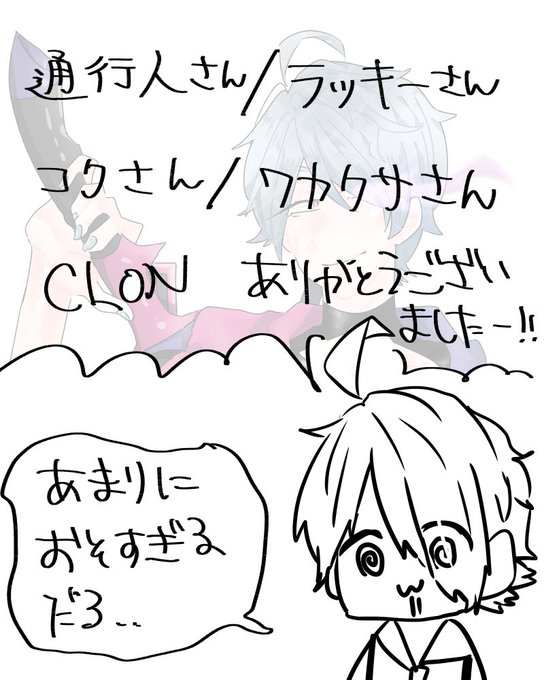 通行人さん/ラッキーさん
コクさん/ワカクサさん
CLON ありがとうござい
ましたー!!
あまりに
おそすぎる
だろ..